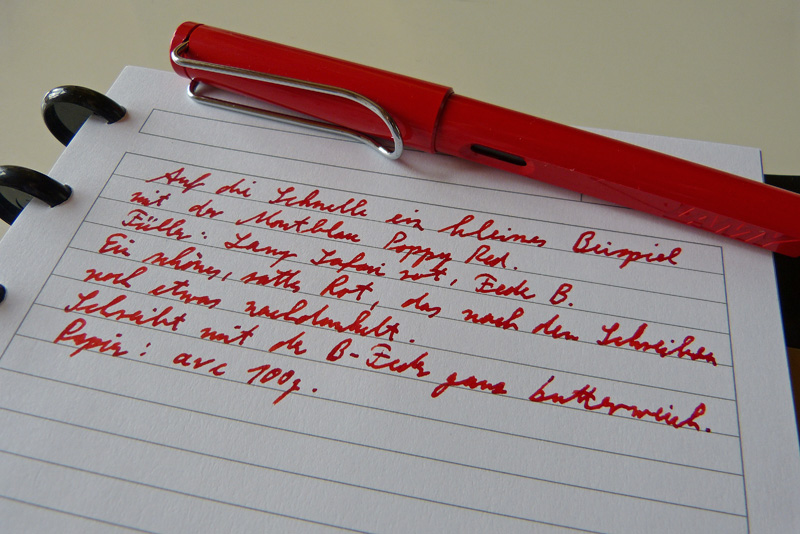 Auf die Schnelle ein kleines Beispiel
mit der Montblanc Poppy Red.
Füller: Lamy Safari rot, Feder B.
Ein schönes, sattes Rot, das nach dem Schreiben
noch etwas nachdunkelt.
Schreibt mit der B-Feder ganz butterweich.
Papier: avc 100g.
LAMY